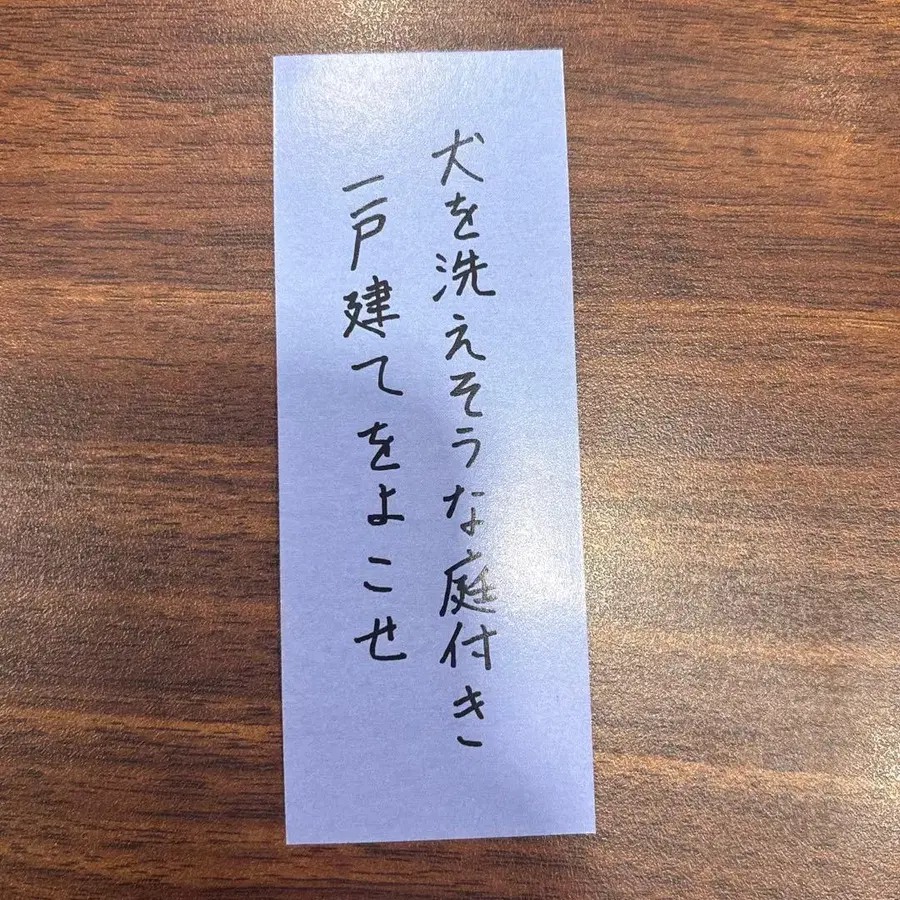 犬を洗えそうな庭付き
一戸建てをよこせ